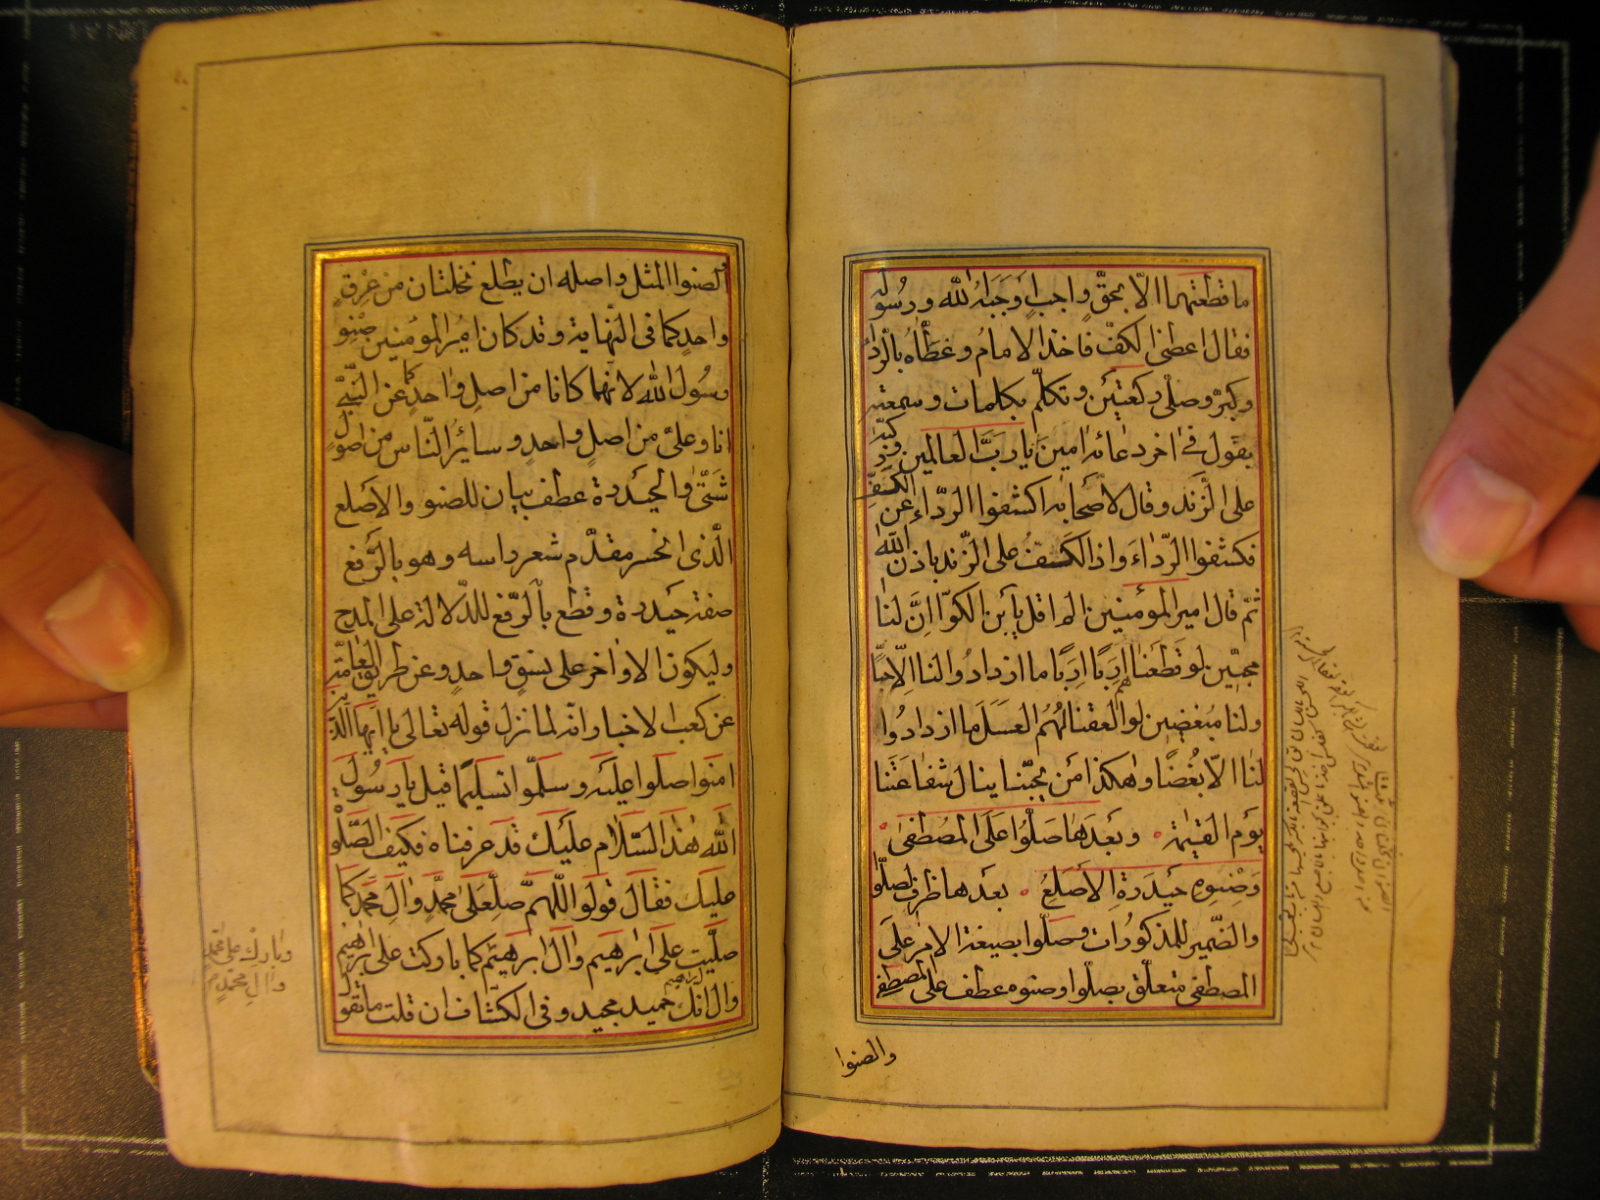 ما قطعتهما الّا بحقّ واجب اوجبه الله ورسوله
فقال اعطنى الكفّ فاخذ الامام وغطّاه بالرّداء
وكبّر وصلّى ركعتين وتكلّم بكلمات وسمعته
يقول فى اخر دعائه امين يا ربّ العالمين وركّبه
على الزّند وقال لاصحابه اكشفوا الرّداء عن الكفّ
فكشفوا الرّداء واذا الكفّ على الزّند باذن الله
ثمّ قال امير المؤمنين الم اقل يابن الكوّا انّ لنا
محبّين لو قطعناهم اربًا اربًا ما ازدادوا لنا الّا حبًّا
ولنا مبغضين لو العقناهم العسل ما ازدادوا
لنا الّا بغضًا وهكذا من يحبّنا ينال شفاعتنا
يوم القيمة وبعدها صلّوا على المصطفى
وصنوه حيدرة الاصلع بعدها ظرف لصلّوا
والضّمير للمذكورات وصلّوا بصيغة الامر على
المصطفى متعلّق بصلّوا وصنوه عطف على المصطفى
والصنوا
الصنوا المثل واصله ان يطلع نخلتان من عرق
واحد كما فى النّهاية وقد كان امير المؤمنين صنو
رسول الله لانّهما كانا من اصل واحد كما عن النّبىّ
انا وعلىّ من اصل واحد وسائر النّاس من اصول
شتّى والحيدرة عطف بيان للصنو والاصلع
الّذى انحسر مقدّم شعر راسه وهو بالرّفع
صفة حيدرة وقطع بالرّفع للدّلالة على المدح
وليكون الاواخر على نسق واحد وعن طريق العامّة
عن كعب الاخبار انّه لمّا نزل قوله تعالى يا ايّها الّذين
امنوا صلوا عليه وسلّموا تسليمًا قيل يا رسول
الله هذا السّلام عليك قد عرفناه فكيف الصّلوة
عليك فقال قولوا اللّهمّ صلّ على محمّد وال محمّد كما
صلّيت على ابرهيم وال ابرهيم كما باركت على ابرهيم
وال ابراهيم انّك حميد مجيد وفى الكشّاف ان قلت ما تقول
وبارك على محمّد
وال محمّد